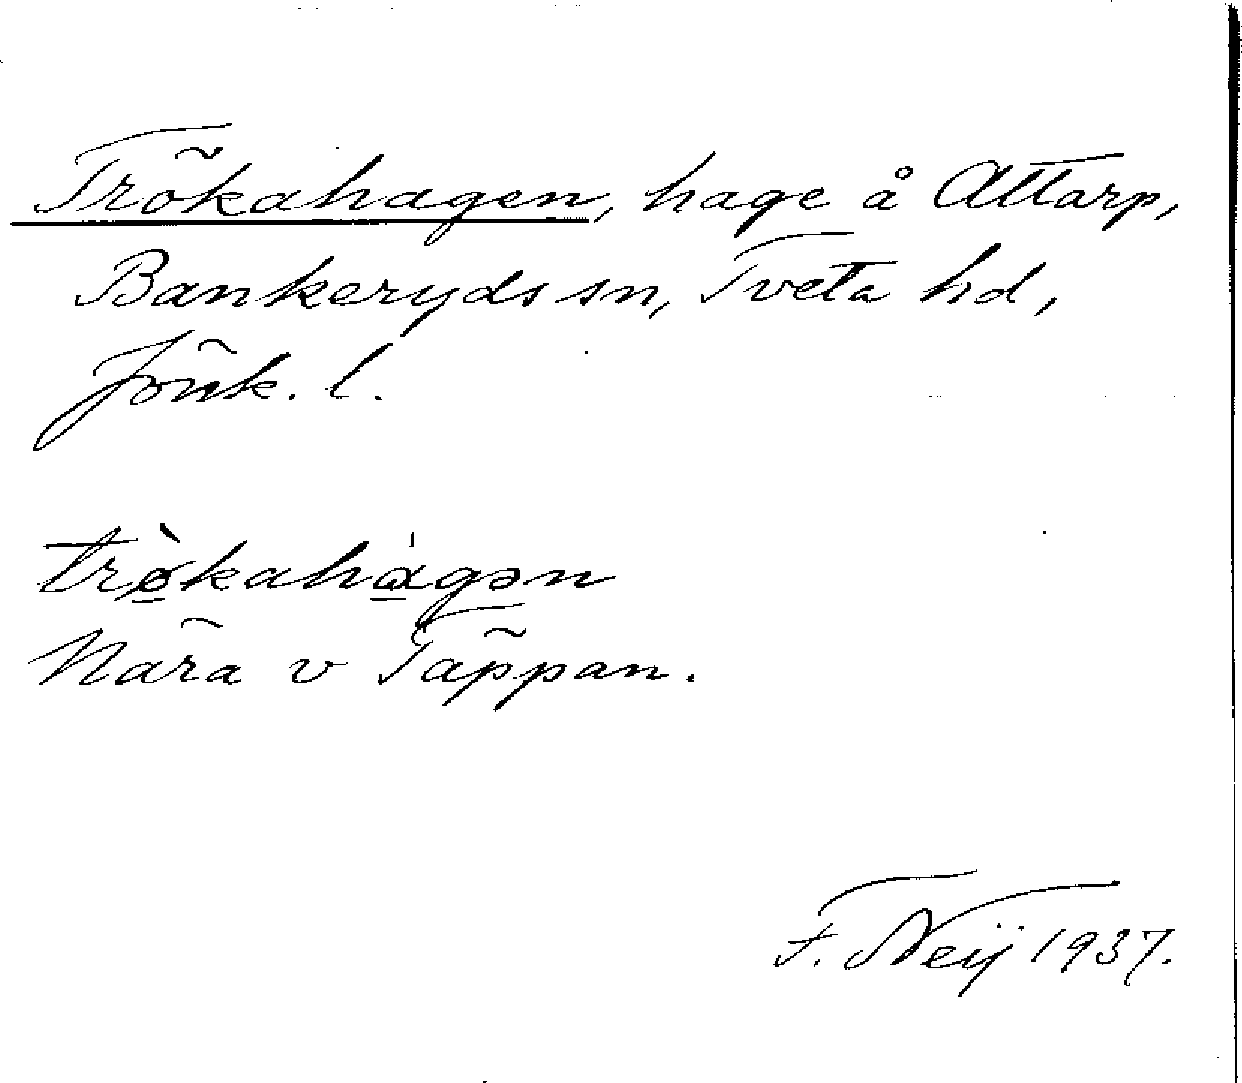 Trökahagen, hage å Attarp,
Bankeryds sn, Tveta hd,
Jönk. l.
trø̀kahágən
Nära v Täppan.
F. Neij 1937.